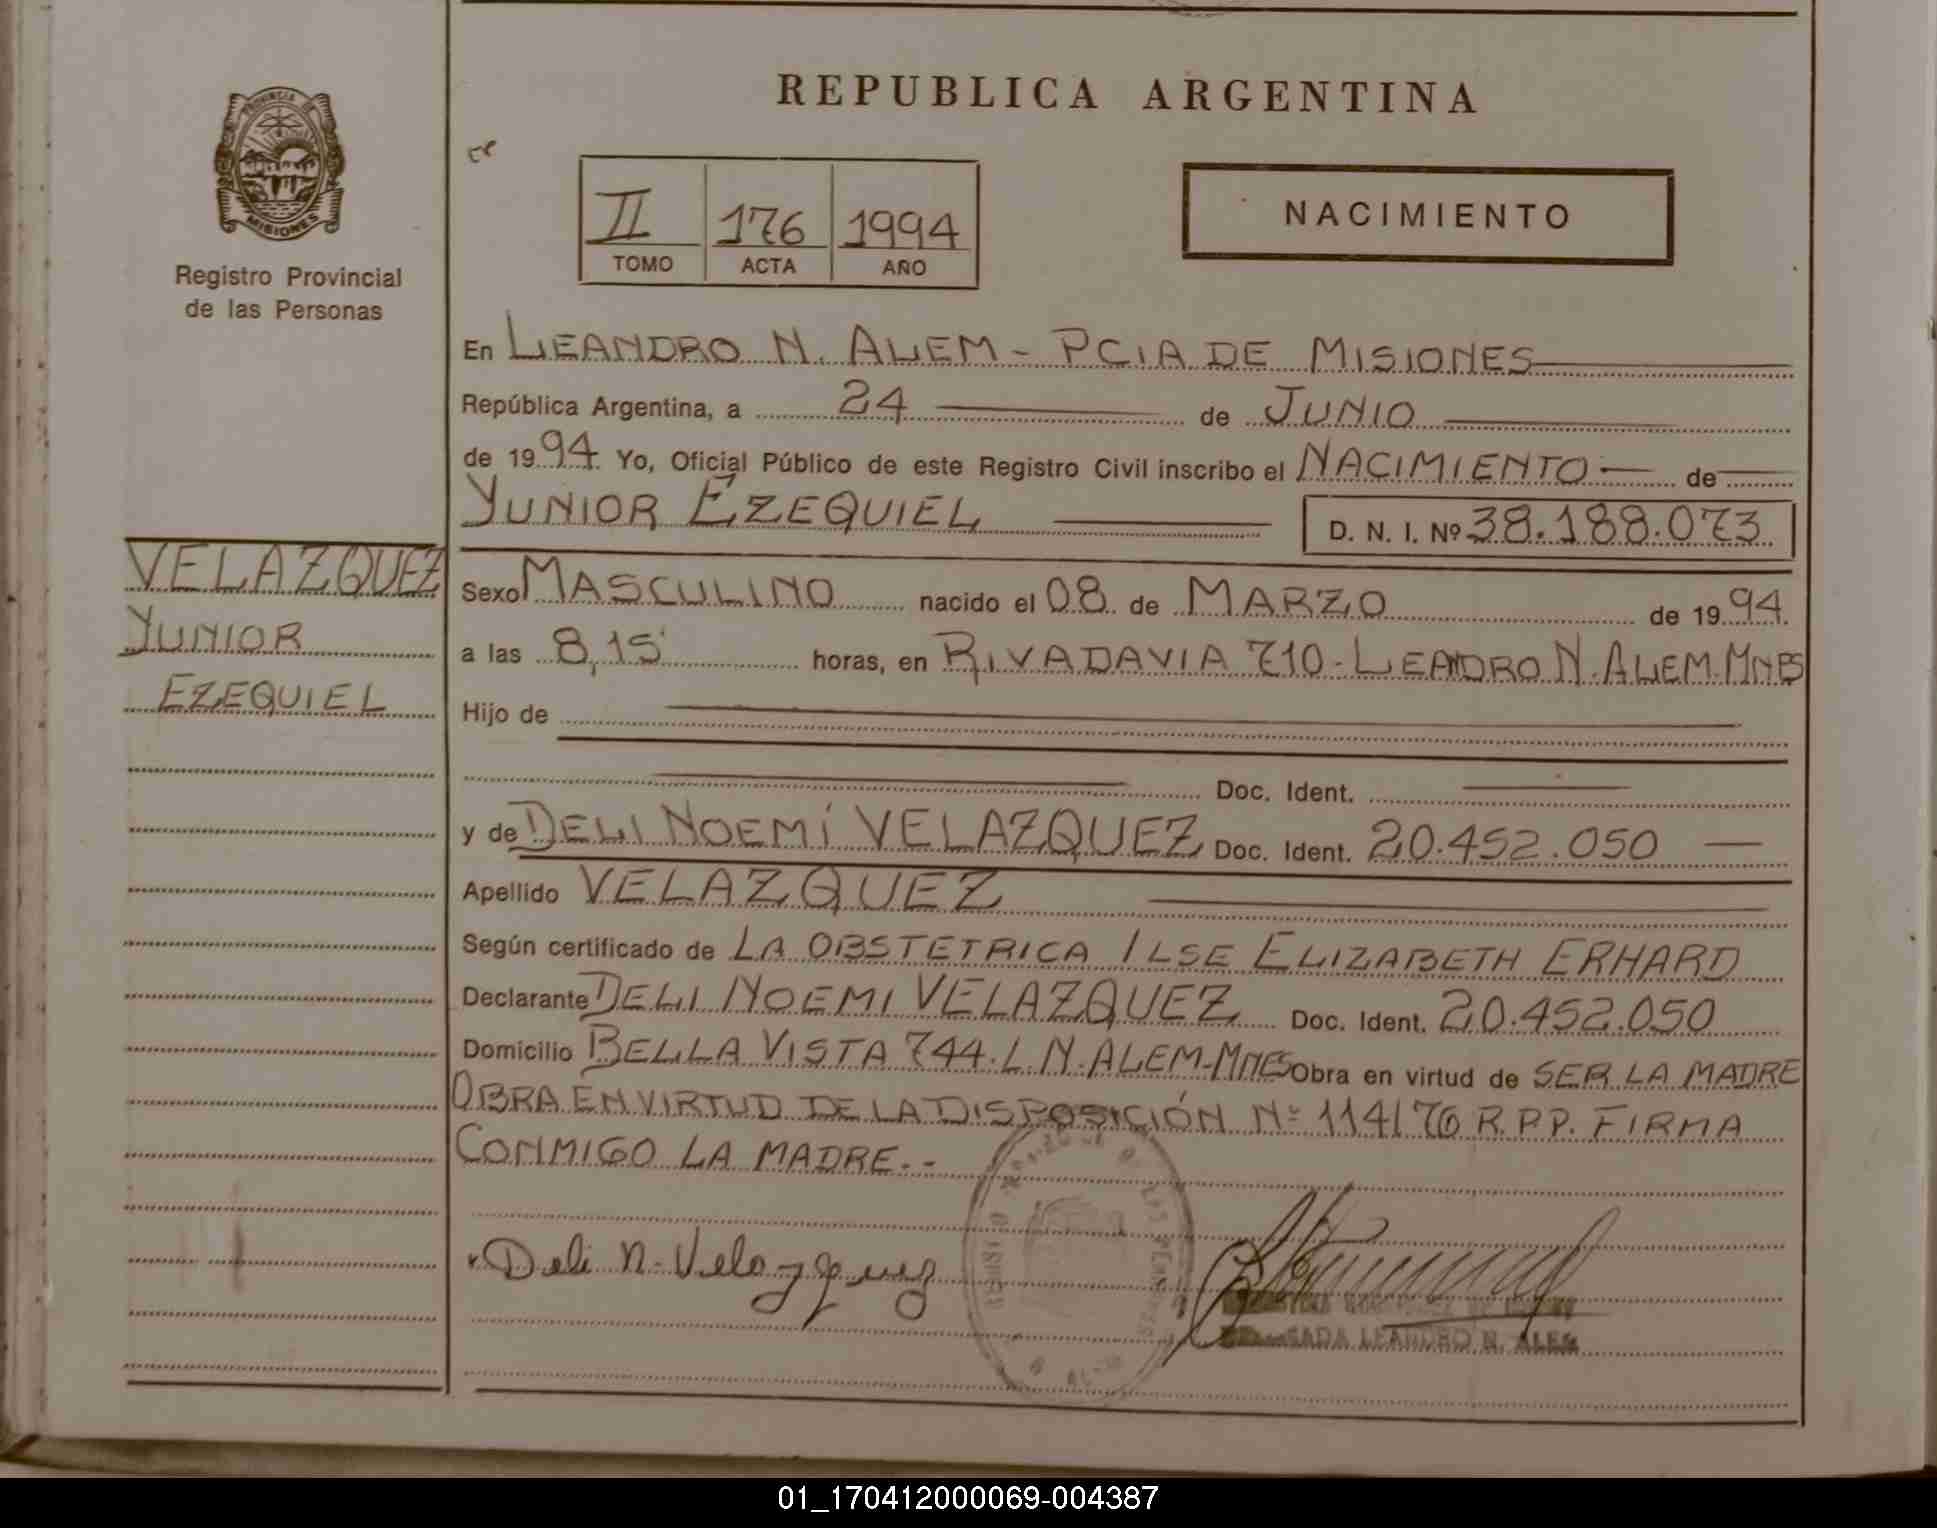 REPUBLICA ARGENTINA
PROVINCIA DE
MISIONES
Registro Provincial
de las Personas
II 176 1994
TOMO ACTA AÑO
NACIMIENTO
En LEANDRO N. ALEM - PCIA DE MISIONES
República Argentina, a 24 de JUNIO
de 1994. Yo, Oficial Público de este Registro Civil inscribo el NACIMIENTO de
YUNIOR EZEQUIEL D. N. I. Nº 38.188.073
VELAZQUEZ
YUNIOR
EZEQUIEL
Sexo MASCULINO nacido el 08 de MARZO de 1994.
a las 8,15 horas, en RIVADAVIA 710 - LEANDRO N. ALEM - MNES
Hijo de
Doc. Ident.
y de DELI NOEMÍ VELAZQUEZ Doc. Ident. 20.452.050
Apellido VELAZQUEZ
Según certificado de LA OBSTETRICA ILSE ELIZABETH ERHARD
Declarante DELI NOEMI VELAZQUEZ Doc. Ident. 20.452.050
Domicilio BELLA VISTA 744 - L. N. ALEM - MNES Obra en virtud de SER LA MADRE
OBRA EN VIRTUD DE LA DISPOSICIÓN Nº 114/76 R.P.P. FIRMA
CONMIGO LA MADRE.-
Deli N. Velazquez
LEANDRO N. ALEM
01_170412000069-004387